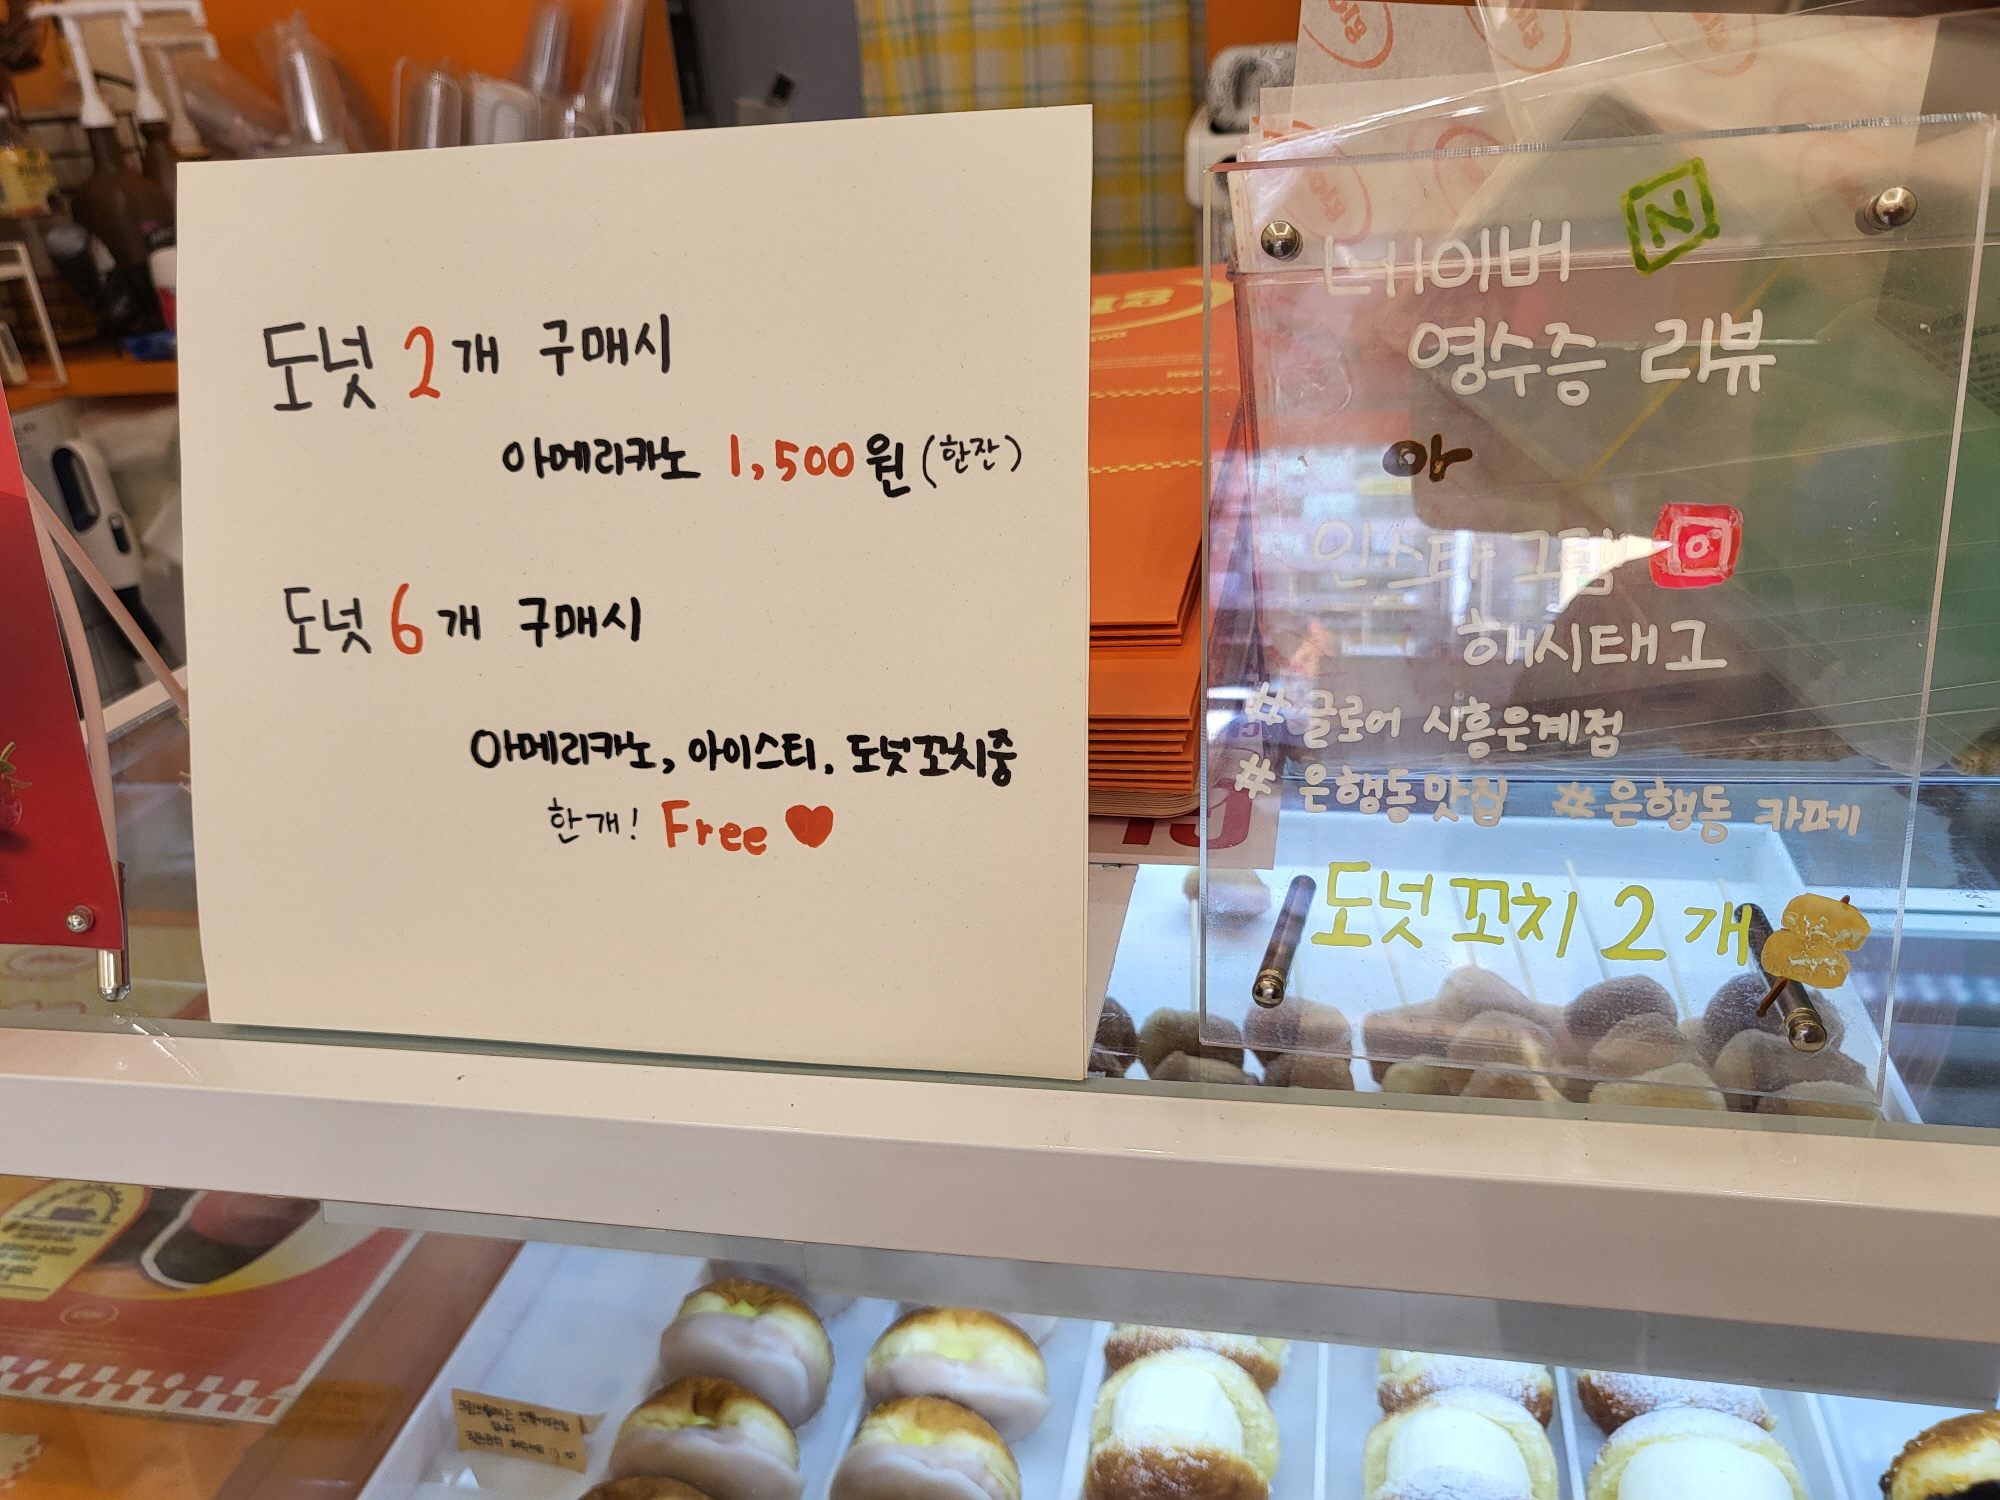 도넛 2개 구매시
아메리카노 1,500원 (한잔)
도넛 6개 구매시
아메리카노, 아이스티, 도넛꼬치중
한개! Free ♥
네이버 N
영수증 리뷰
와
인스타그램
해시태그
# 글로어 시흥은계점
# 은행동맛집 # 은행동 카페
도넛꼬치 2개